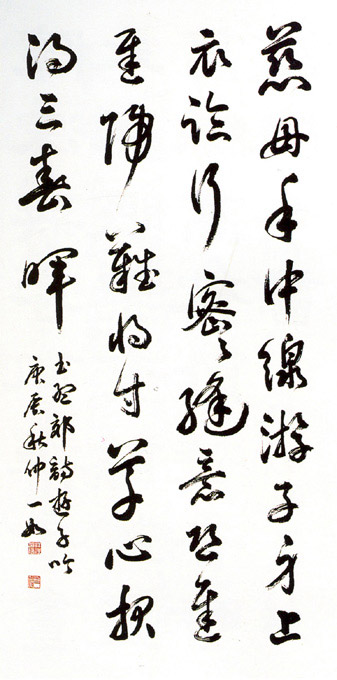 慈母手中線游子身上
衣臨行密密縫意恐遲
遲歸難將寸草心報
得三春暉
書孟郊詩遊子吟
庚辰秋仲一如